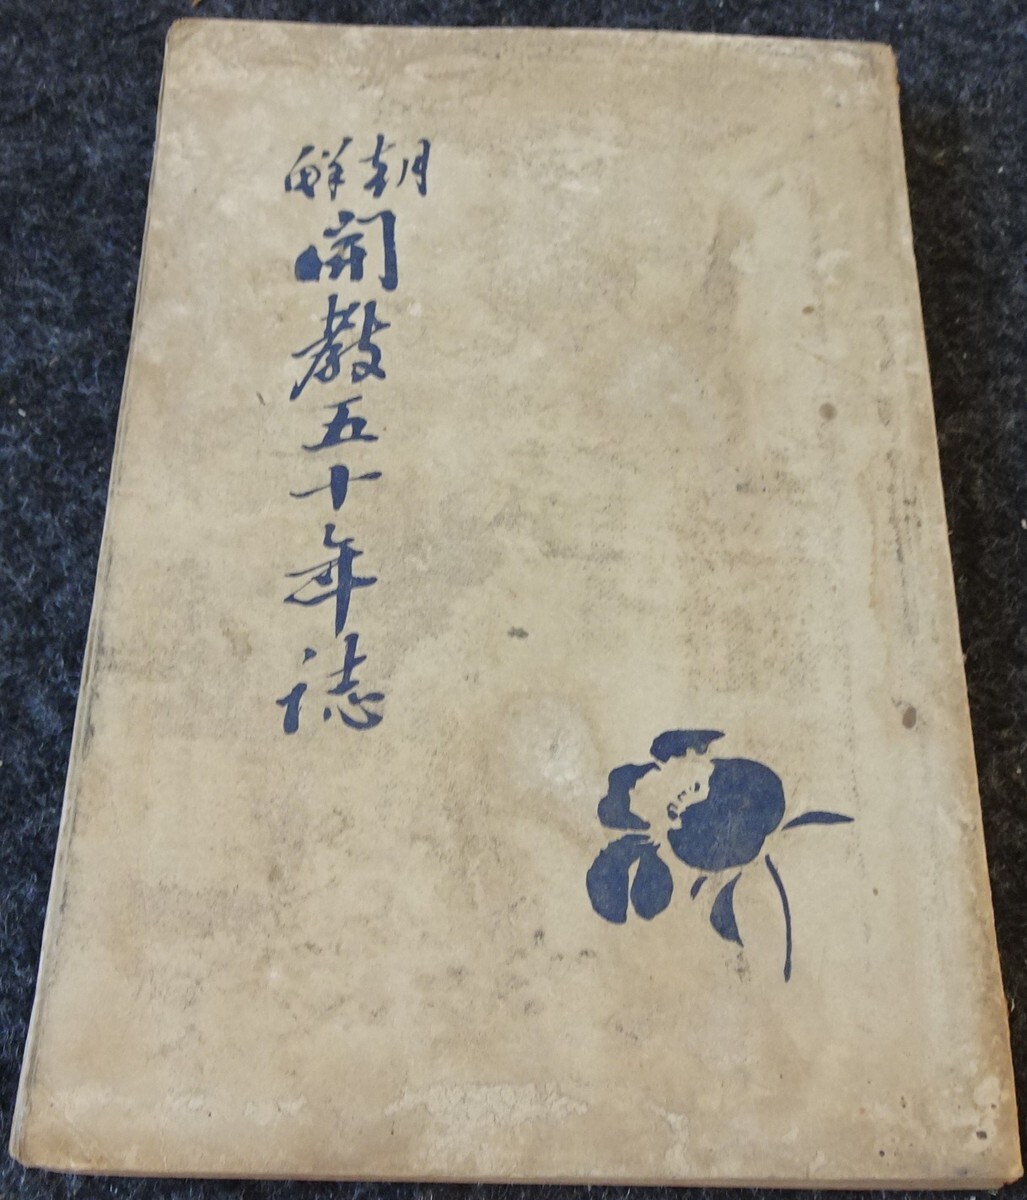 朝鮮
開教五十年誌